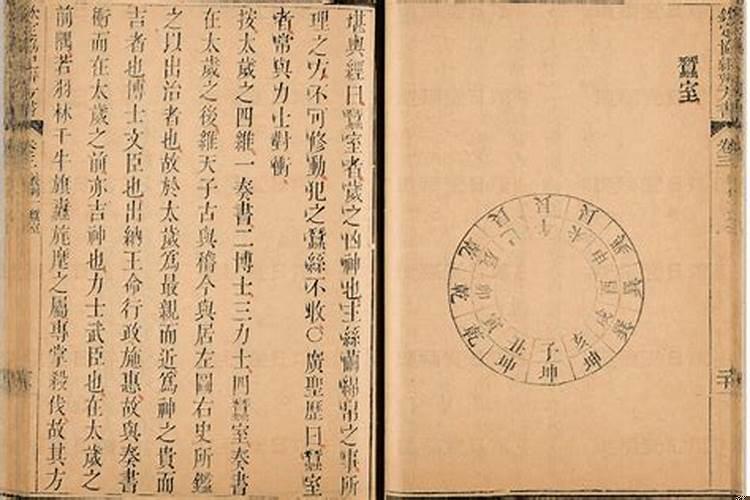 欽定協紀辨方書
卷三
蠶室
子 坤
丑 坤
寅 乾
卯 乾
辰 乾
巳 艮
午 艮
未 艮
申 巽
酉 巽
戌 巽
亥 坤
堪輿經曰蠶室者歲之凶神也主絲繭綿帛之事所
理之方不可修動犯之蠶絲不收○廣聖歷曰蠶室
者常與力士對衝
按太歲之四維一奏書二博士三力士四蠶室奏書
在太歲之後維天子古與稽今與居左圖右史所鑑
之以出治者也故於太歲為最親而近為神之貴而
吉者也博士文臣也出納王命行政施惠故與奏書
衝而在太歲之前亦吉神也力士武臣也在太歲之
前隅若羽林千牛旗纛旄麾之屬專掌殺伐故其方
卷三